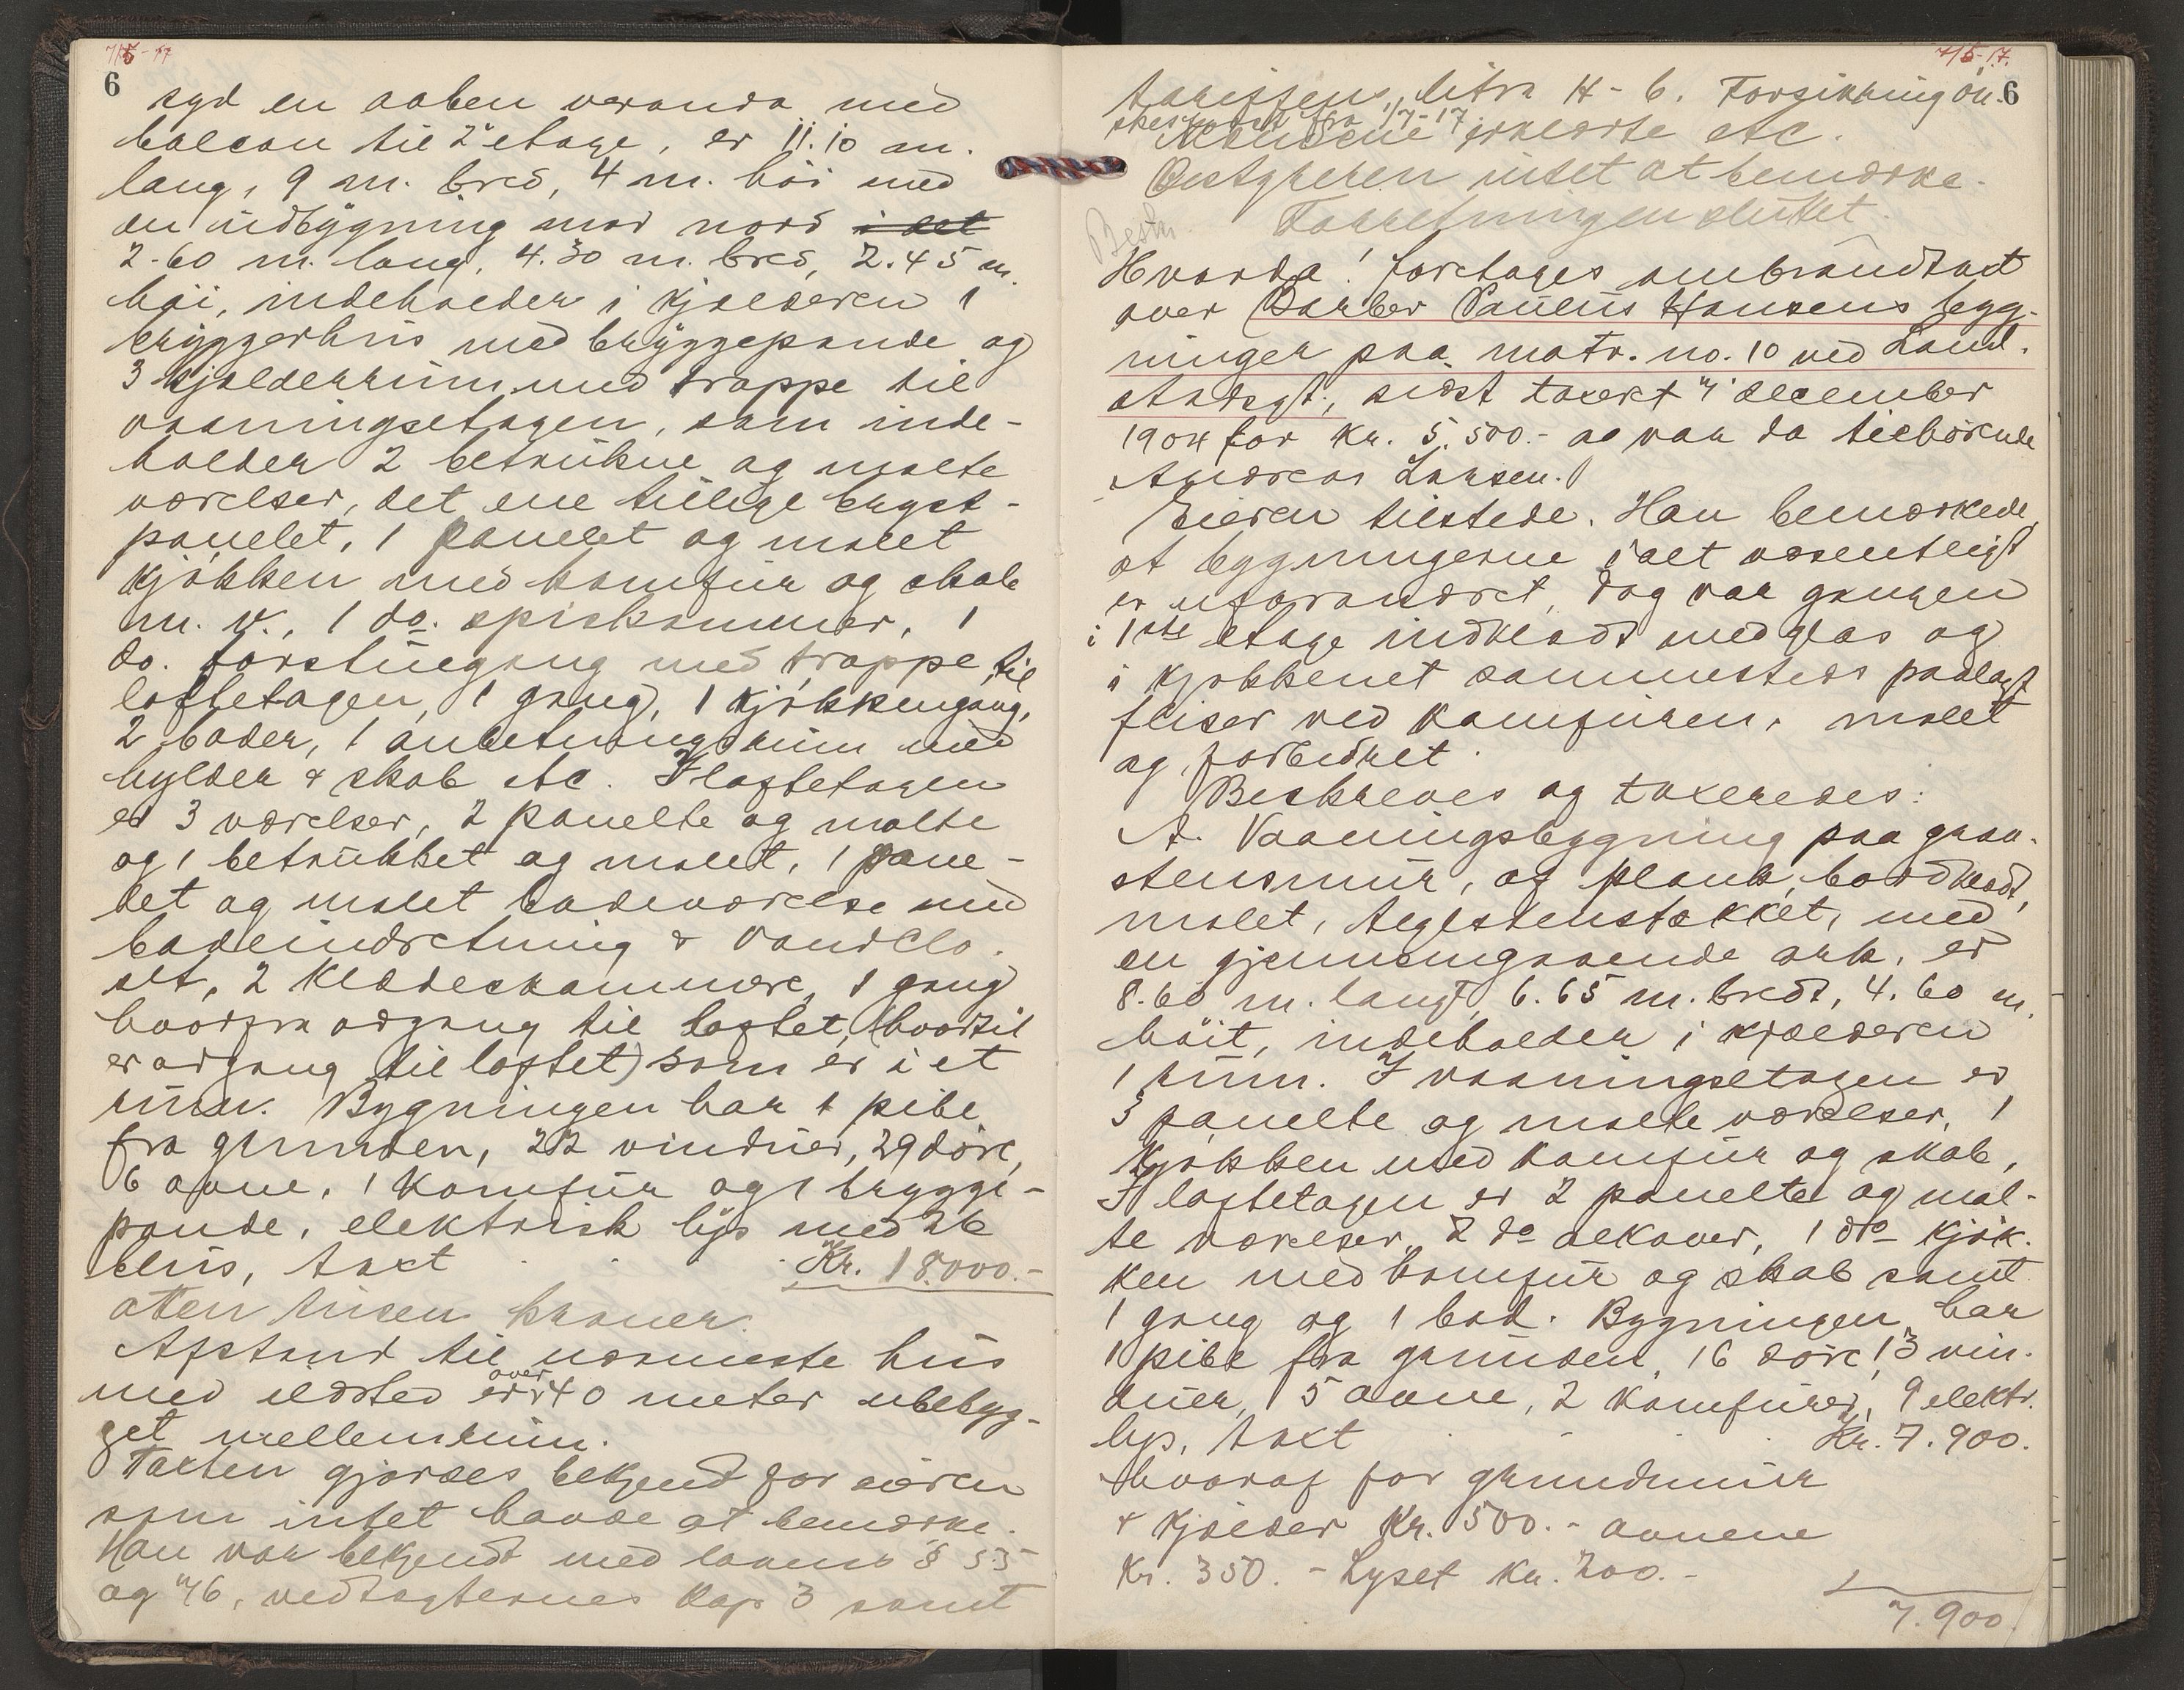 7/5-17
6
syd en aaben veranda med
balcon til 2' etage, er 11.10 m.
lang, 9 m. bred, 4 m. höi med
en udbygning mod nord i det
2.60 m. lang, 4.30 m. bred, 2.45 m.
höi, indeholder i kjælderen 1
bryggerhus med bryggepande og
3 kjælderrum med trappe til
vaaningsetagen, som inde-
holder 2 betrukne og malte
værelser, det ene tillige bryst-
panelet, 1 panelet og malet
kjökken med komfur og skab
m. v., 1 do. spiskammer, 1
do. forstuegang med trappe til
loftetagen, 1 gang, 1 kjökkengang,
2 boder, 1 anretningsrum med
hylder & skab etc. I loftetagen
er 3 værelser, 2 panelte og malte
og 1 betrukket og malet, 1 pane-
let og malet badeværelse med
badeindretning & vandclo-
set, 2 klædeskammere, 1 gang
hvorfra adgang til loftet, (hvortil
er adgang til loftet) som er i et
rum. Bygningen har 1 pibe
fra grunden, 22 vinduer, 29 döre,
6 ovne, 1 komfur og 1 brygge-
pande, elektrisk lys med 26
blus, taxt . . Kr. 18000.-
atten tusen kroner.
Afstand til nærmeste hus
med ildsted er over 40 meter ubebyg-
get mellemrum.
Taxten gjordes bekjendt for eieren
som intet havde at bemærke.
Han var bekjendt med lovens § 55
og 76, vedtægternes kap 3 samt
7/5-17.
6
tariffens litra H - 6. Forsikring ön-
skes fra 1/7-17.
Mændene erklærte etc.
Bestyreren intet at bemærke.
Forretningen sluttet.
Best.
Hvorda! foretages ombrandtaxt
over Barber Paulus Hansens byg-
ninger paa matr. no. 10 ved Land-
stadsgt., sidst taxert 7' december
1904 for kr. 5.500.- og var da tilhörende
Andreas Larsen.
Eieren tilstede. Han bemærkede
at bygningerne ialt væsentligt
er uforandret, dog var gangen
i 1ste etage indklædt med glas og
i kjökkenet sammesteds paalagt
fliser ved komfuren, malet
og forbedret.
Beskreves og taxeredes:
A. Vaaningsbygning paa graa-
stensmur, af plank, bordklædt,
malet, teglstenstækket, med
en gjennemgaaende ark, er
8.60 m. langt, 6.65 m. bredt, 4.60 m.
höit, indeholder i kjælderen
1 rum. I vaaningsetagen er
3 panelte og malte værelser, 1
kjökken med komfur og skab,
I loftetagen er 2 panelte og mal-
te værelser, 2 do alkover, 1 do kjök-
ken med komfur og skab samt
1 gang og 1 bod. Bygningen har
1 pibe fra grunden, 16 döre, 13 vin-
duer, 5 ovne, 2 komfurer, 9 elektr.
lys, taxt . . . Kr. 7.900.
hvoraf for grundmur
& kjælder Kr. 500.- ovnene
Kr. 350.- Lyset Kr. 200.-
7.900